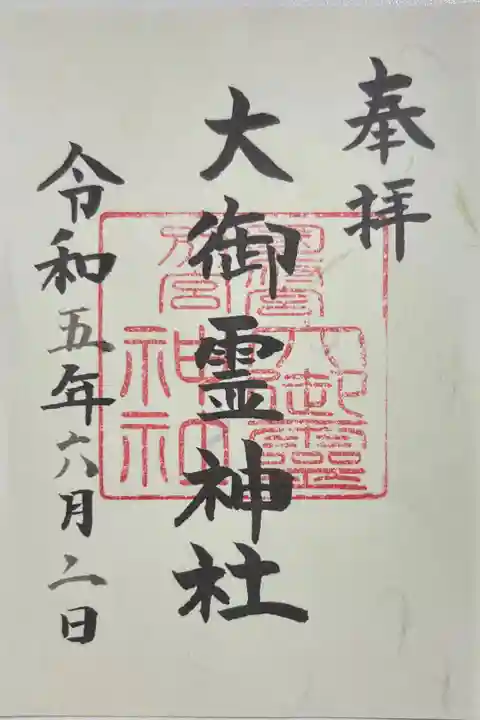 奉拝
大御霊神社
令和五年六月二日